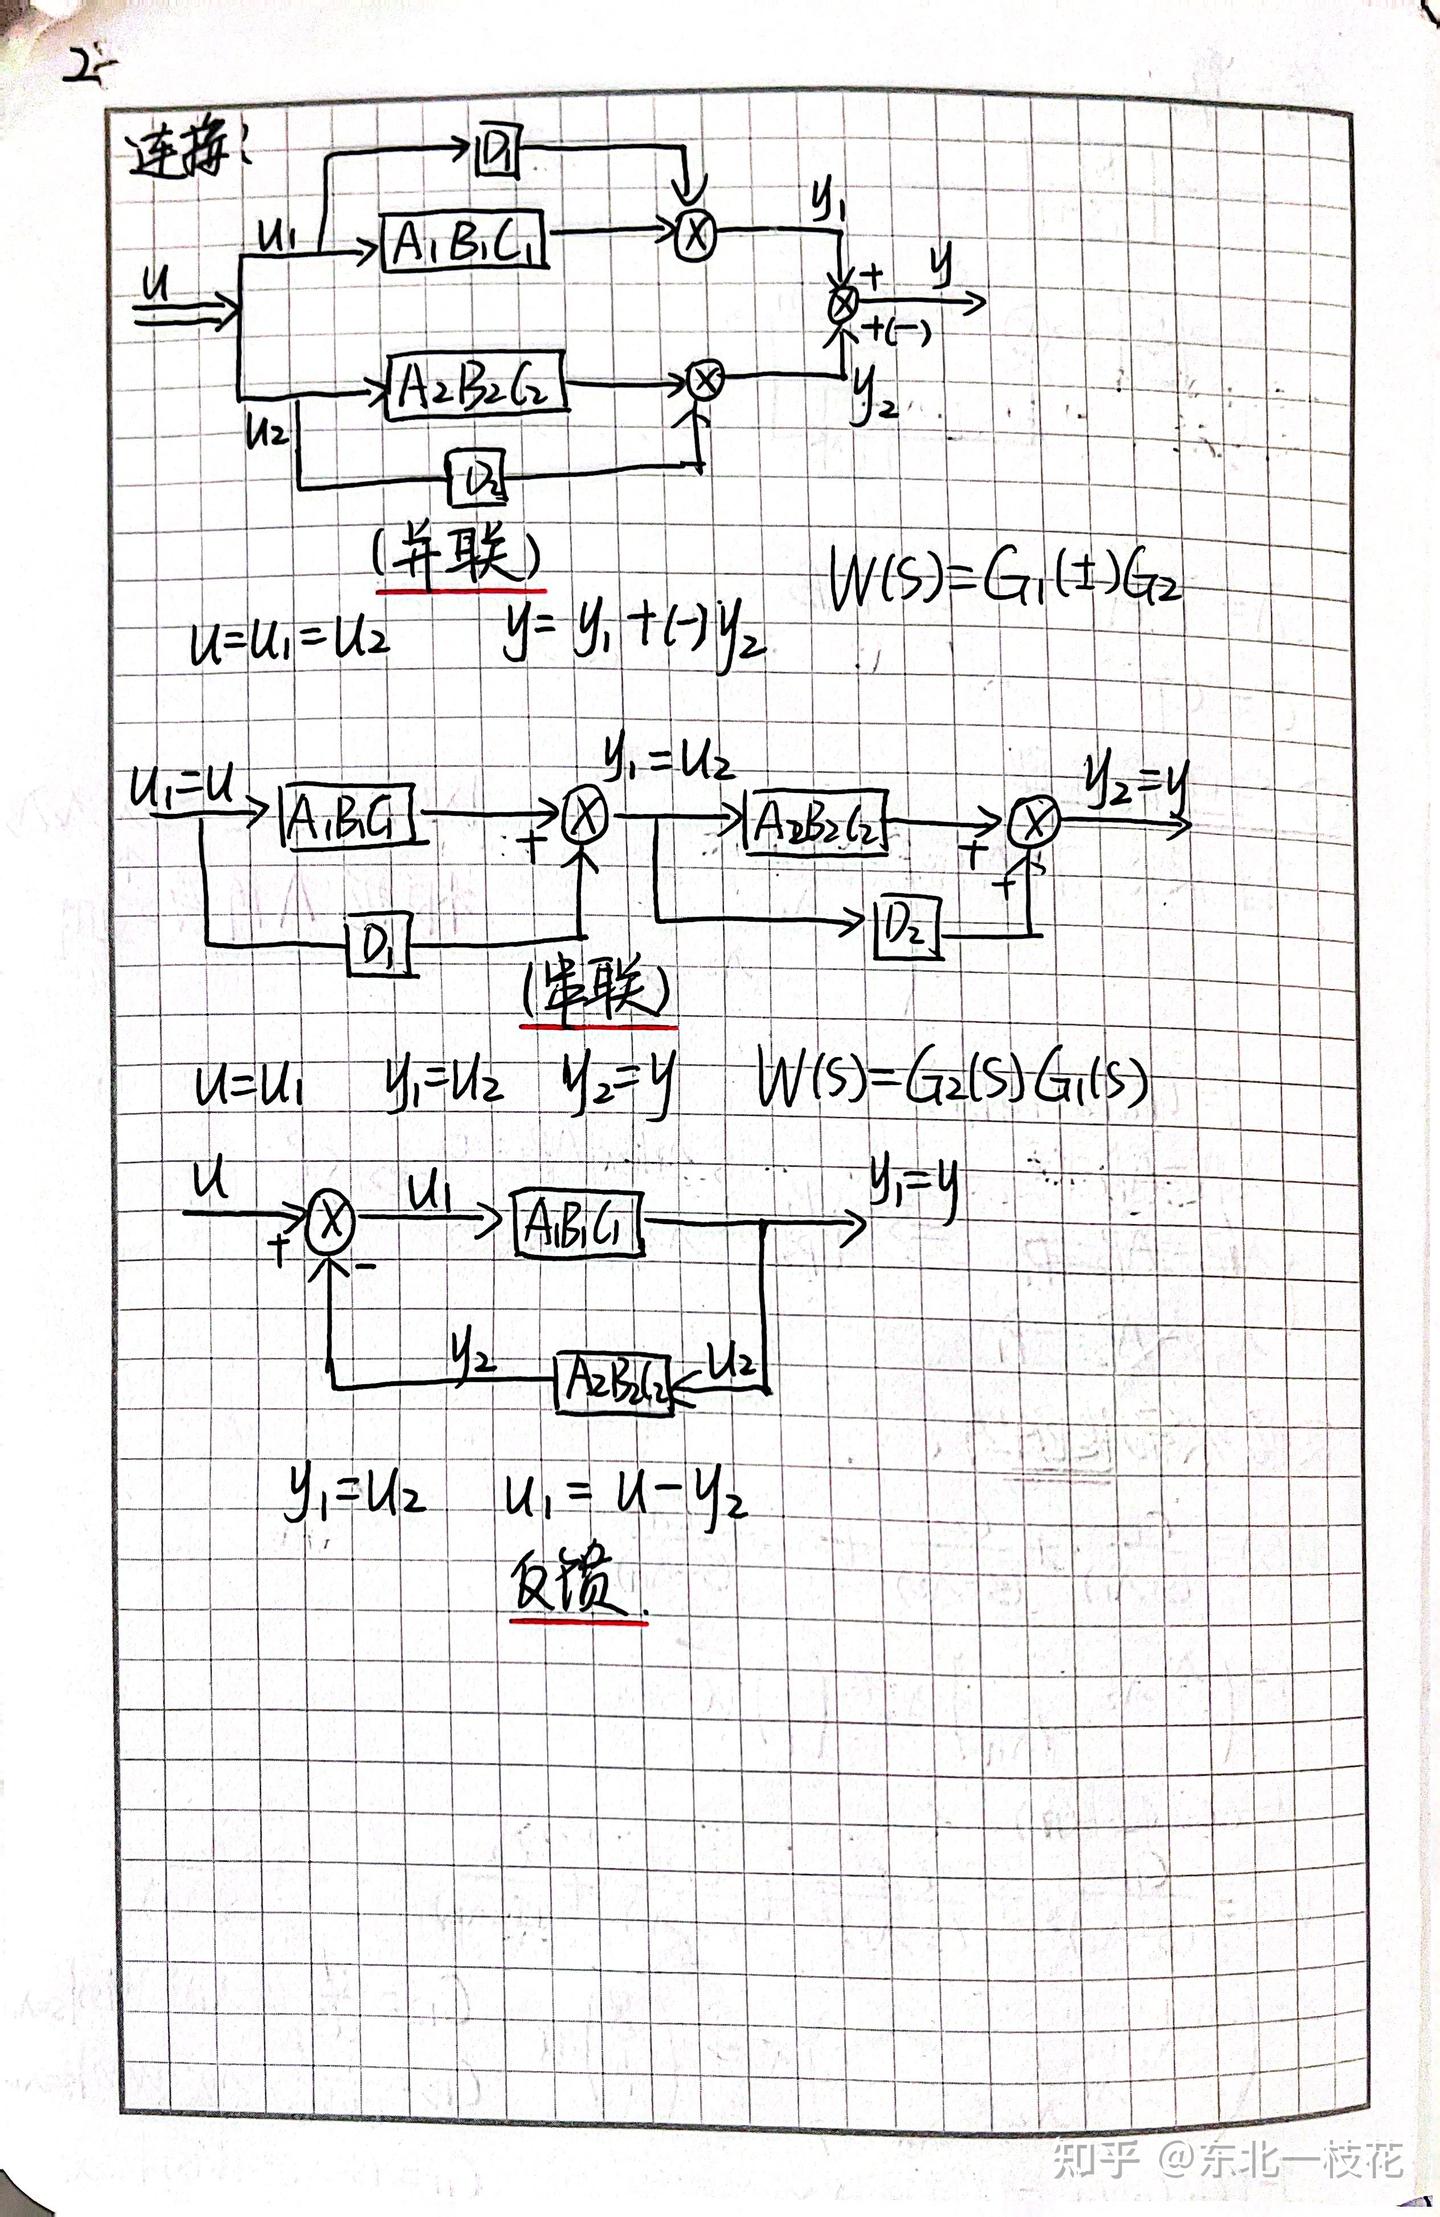 2-
连接:
D1
u1 A1B1C1 y1
u + y
+(-)
A2B2C2 y2
u2
D2
(并联)
W(S)=G1(±)G2
u=u1=u2 y=y1+(-)y2
y1=u2 y2=y
u1=u A1B1C1 + A2B2C2 + +
D1 D2
(串联)
u=u1 y1=u2 y2=y W(S)=G2(S)G1(S)
u u1 A1B1C1 y1=y
+ -
y2 A2B2C2 u2
y1=u2 u1=u-y2
反馈.
知乎 @东北一枝花